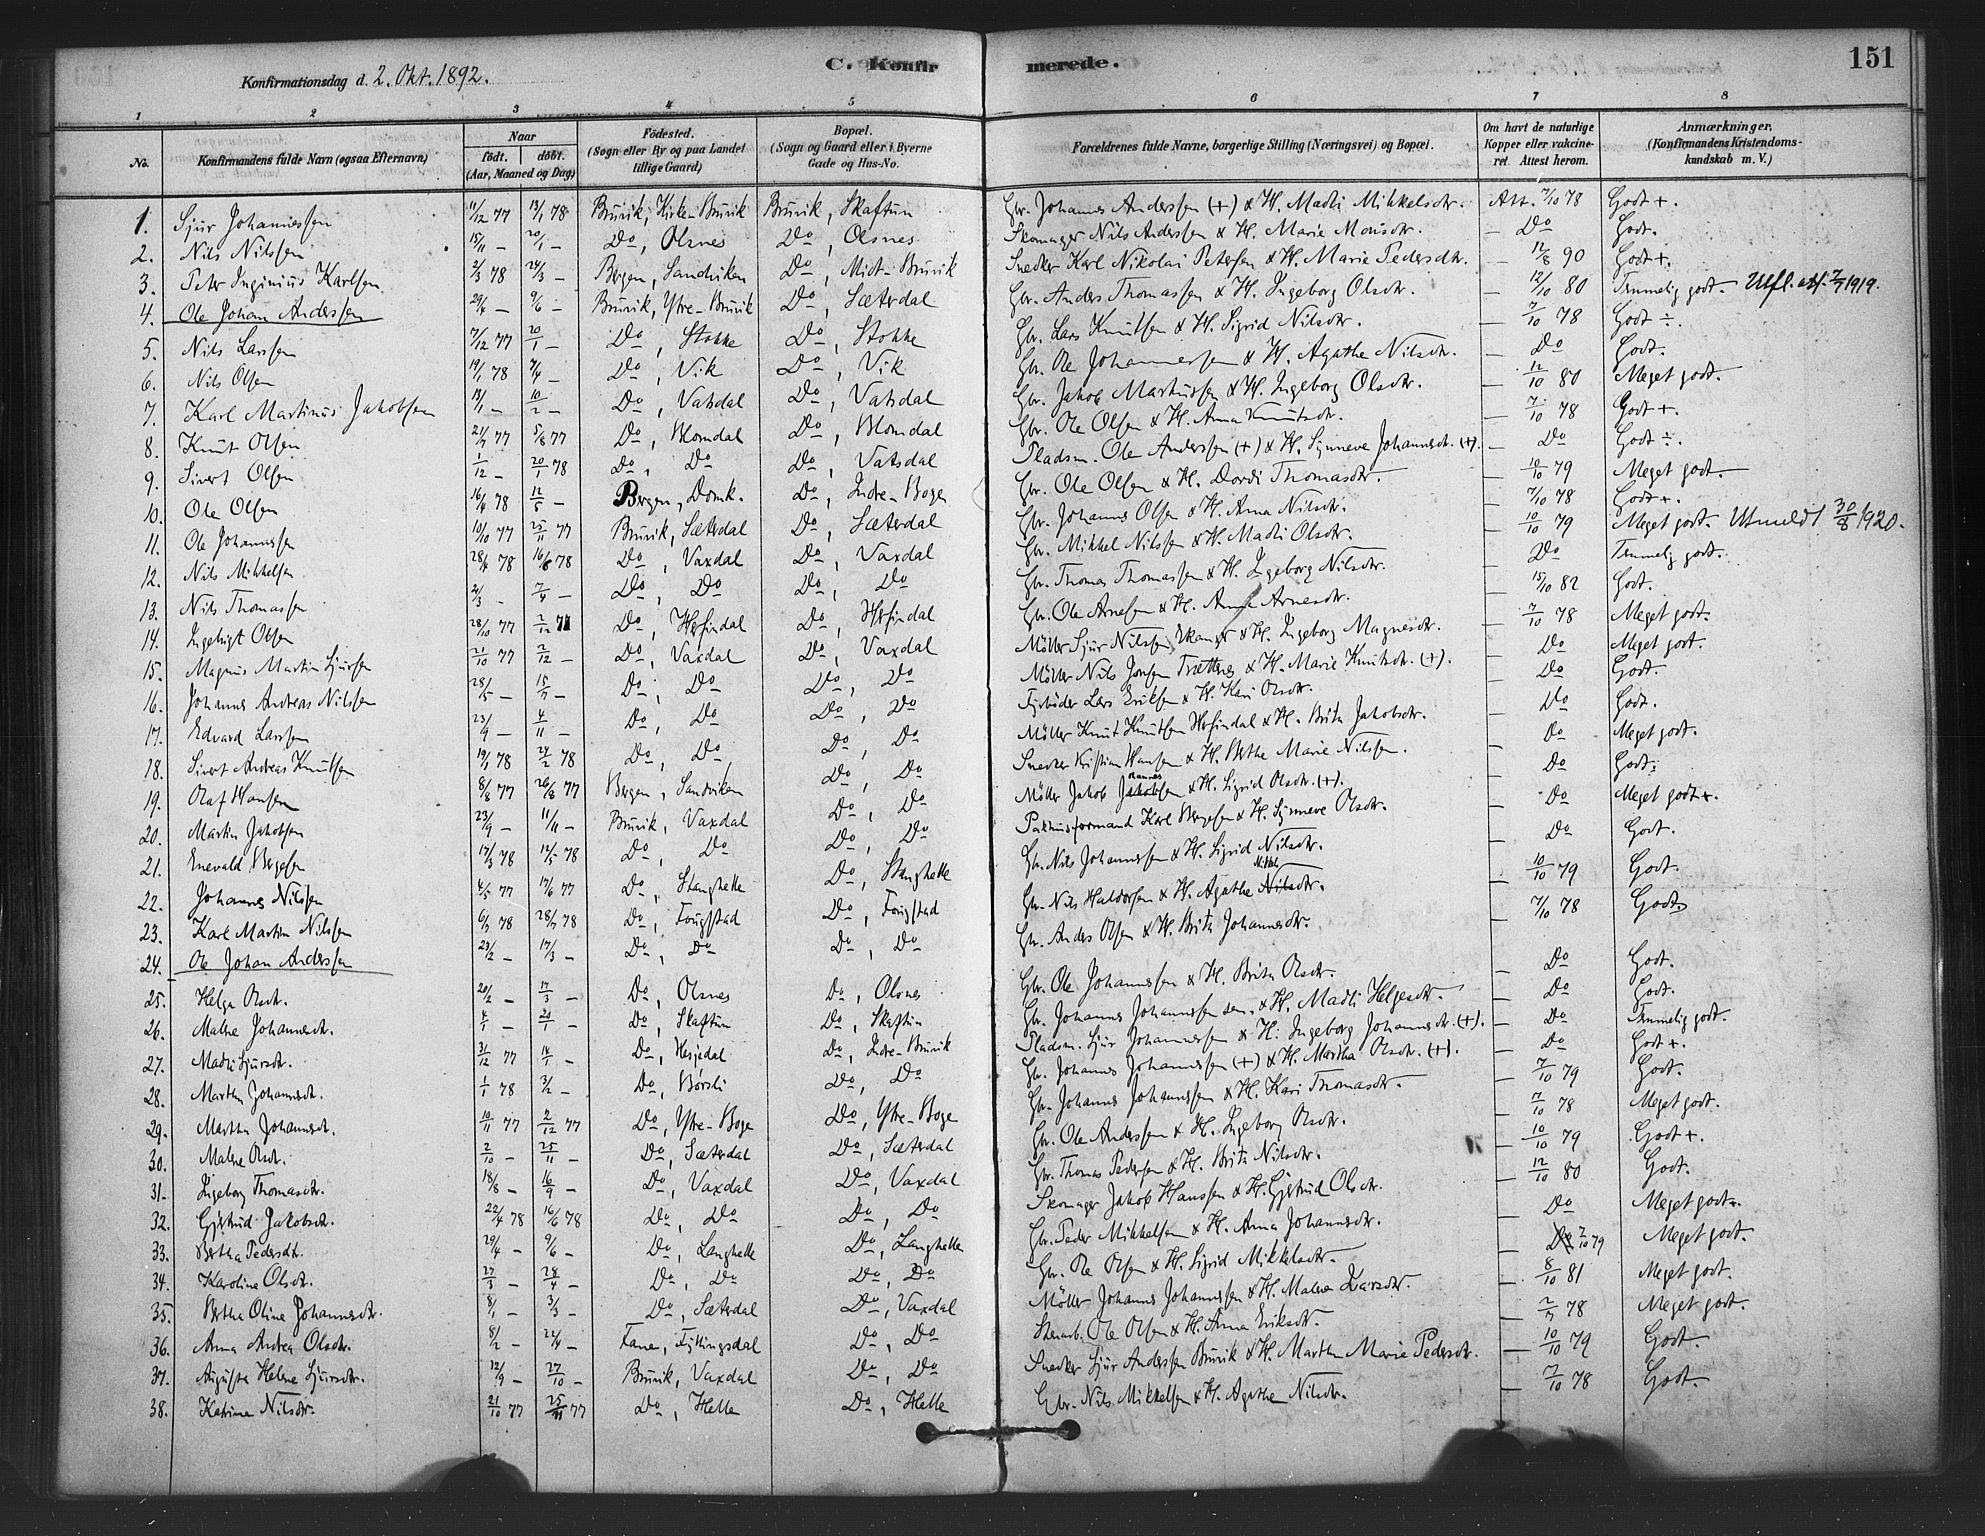 151
Konfirmationsdag d. 2. Okt. 1892.
C. Konfirmerede.
1 2 3 4 5 6 7 8
No. Konfirmandens fulde Navn (ogsaa Efternavn) Naar födt. döbt. (Aar, Maaned og Dag) Födested. (Sogn eller By og paa Landet tillige Gaard) Bopæl. (Sogn og Gaard eller i Byerne Gade og Hus-No. Forældrenes fulde Navne, borgerlige Stilling (Næringsvei) og Bopæl. Om havt de naturlige Kopper eller vakcineret. Attest herom. Anmærkninger. (Konfirmandens Kristendomskundskab m. V.)
1. Sjur Johannessen 11/12 77 13/1 78 Bruvik, Kirke-Bruvik Bruvik, Skaftun Gbr. Johannes Anderssen (+) & H. Madli Mikkelsdtr. Att. 7/10 78 Godt +.
2. Nils Nilssen 15/11 — 20/1 — Do, Olsnes Do, Olsnes Skomager Nils Anderssen & H. Marie Monsdtr. — Do Godt.
3. Peter Inginius Karlsen 2/3 78 24/3 — Bergen, Sandviken Do, Midt-Bruvik Snedker Karl Nikolai Petersen & H. Marie Pedersdtr. — 12/8 90 Godt +.
4. Ole Johan Anderssen 29/4 — 9/6 — Bruvik, Ytre-Bruvik Do, Sæterdal Gbr. Anders Thomassen & H. Ingeborg Olsdtr. — 12/10 80 Temmelig godt. Utfl. att. 2/7 1919.
5. Nils Larssen 7/12 77 20/1 — Do, Stokke Do, Stokke Gbr. Lars Knutsen & H. Sigrid Nilsdtr. — 7/10 78 Godt ÷.
6. Nils Olsen 19/1 78 7/4 — Do, Vik Do, Vik Gbr. Ole Johannessen & H. Agathe Nilsdtr. — Do Godt.
7. Karl Martinus Jakobsen 13/1 — 10/2 — Do, Vatsdal Do, Vatsdal Gbr. Jakob Markussen & H. Ingeborg Olsdtr. — 12/10 80 Meget godt.
8. Knut Olsen 21/7 77 5/8 77 Do, Blomdal Do, Blomdal Gbr. Ole Olsen & H. Anna Knutsdtr. — 7/10 78 Godt +.
9. Sivert Olsen 1/12 — 20/1 78 Do, Do Do, Vatsdal Pladsm. Ole Anderssen (+) & H. Synneve Johannesdtr. (+). — Do Godt ÷.
10. Ole Olsen 16/4 78 12/5 — Bergen, Domk. Do, Indre-Boge Gbr. Ole Olsen & H. Dordi Thomasdtr. — 10/10 79 Meget godt.
11. Ole Johannessen 10/10 77 25/11 77 Bruvik, Sæterdal Do, Sæterdal Gbr. Johannes Olsen & H. Anna Nilsdtr. — 7/10 78 Godt +.
12. Nils Mikkelsen 28/4 78 16/6 78 Do, Vaxdal Do, Vaxdal Gbr. Mikkel Nilssen & H. Madli Olsdtr. — 10/10 79 Meget godt. Utmeldt 30/8 1920.
13. Nils Thomassen 2/3 — 7/4 — Do, Do Do, Do Gbr. Thomas Thomassen & H. Ingeborg Nilsdtr. — Do Temmelig godt.
14. Ingebrigt Olsen 28/10 77 2/12 77 Do, Herfindal Do, Herfindal Gbr. Ole Arnesen & H. Anna Arnesdtr. — 15/10 82 Godt.
15. Magnus Martin Sjursen 21/10 77 2/12 — Do, Vaxdal Do, Vaxdal Möller Sjur Nilssen & H. Ingeborg Magnesdtr. — 7/10 78 Meget godt.
16. Johannes Andreas Nilssen 28/5 — 15/7 — Do, Do Do, Do Möller Nils Jonsen Trætteness & H. Marie Knutsdtr. (+). — Do Meget godt.
17. Edvard Larssen 23/9 — 4/11 — Do, Do Do, Do Fyrböder Lars Eriksen & H. Kari Olsdtr. — Do Godt.
18. Sivert Andreas Knutsen 19/1 78 24/2 78 Do, Do Do, Do Möller Knut Knutsen Herfindal & H. Brita Jakobsdtr. — Do Godt.
19. Olaf Hansen 8/8 77 26/8 77 Bergen, Sandviken Do, Do Snedker Kristian Hansen & H. Berthe Marie Nilssen. — Do Meget godt.
20. Martin Jakobsen 23/9 — 11/11 — Bruvik, Vaxdal Do, Do Möller Jakob Johannessen & H. Sigrid Olsdtr. (+). — Do Godt.
21. Enevald Bergesen 17/3 78 12/5 78 Do, Do Do, Do Pakhusformand Karl Bergesen & H. Synneve Olsdtr. — Do Meget godt +.
22. Johannes Nilssen 4/5 77 17/6 77 Do, Stanghelle Do, Stanghelle Gbr. Nils Johannessen & H. Sigrid Nilsdtr. — Do Godt.
23. Karl Martin Nilssen 6/7 78 28/7 78 Do, Fougstad Do, Fougstad Gbr. Nils Haldorsen & H. Agathe Nilsdtr. — 10/10 79 Godt.
24. Ole Johan Anderssen 23/2 — 17/3 — Do, Do Do, Do Gbr. Anders Olsen & H. Brita Johannesdtr. — 7/10 78 Godt.
25. Helga Olsdtr. 20/2 — 17/3 — Do, Olsnes Do, Olsnes Gbr. Ole Johannessen & H. Brita Olsdtr. — Do Godt.
26. Malene Johannesdtr. 4/1 — 20/1 — Do, Skaftun Do, Skaftun Gbr. Johannes Johannessen sen. & H. Madli Helgesdtr. — Do Godt.
27. Madli Sjursdtr. 31/12 77 14/1 — Do, Hesjedal Do, Indre-Bruvik Pladsm. Sjur Johannessen & H. Ingeborg Johannesdtr. (+). — Do Temmelig godt.
28. Martha Johannesdtr. 1/1 78 3/2 — Do, Børsli Do, Do Gbr. Johannes Johannessen (+) & H. Martha Olsdtr. (+). — Do Godt +.
29. Martha Johannesdtr. 10/11 77 2/12 77 Do, Ytre-Boge Do, Ytre-Boge Gbr. Johannes Johannessen & H. Kari Thomasdtr. — 7/10 79 Godt.
30. Malene Olsdtr. 2/10 — 25/11 — Do, Sæterdal Do, Sæterdal Gbr. Ole Anderssen & H. Ingeborg Olsdtr. — 7/10 78 Meget godt.
31. Ingeborg Thomasdtr. 18/8 — 16/9 — Do, Vaxdal Do, Vaxdal Gbr. Thomas Pedersen & H. Brita Nilsdtr. — 10/10 79 Godt +.
32. Gjertrud Jakobsdtr. 22/4 78 16/6 78 Do, Do Do, Do Skomager Jakob Hanssen & H. Gjertrud Olsdtr. — 12/10 80 Godt.
33. Bertha Pedersdtr. 29/4 — 9/6 — Do, Langhelle Do, Langhelle Gbr. Peder Mikkelsen & H. Anna Johannesdtr. — Do Meget godt.
34. Karoline Olsdtr. 27/3 — 28/4 — Do, Do Do, Do Gbr. Ole Olsen & H. Sigrid Mikkelsdtr. — 7/10 79 Meget godt.
35. Bertha Oline Johannesdtr. 8/1 — 3/3 — Do, Sæterdal Do, Vaxdal Möller Johannes Johannessen & H. Malene Larsdtr. — 8/10 81 Meget godt.
36. Anna Andrea Olsdtr. 8/2 — 22/4 — Fane, Fyllingsdal Do, Do Stenarb. Ole Olsen & H. Anna Eriksdtr. — 2/7 78 Meget godt.
37. Augusta Helene Sjursdtr. 12/9 — 27/10 — Bruvik, Vaxdal Do, Do Snedker Sjur Anderssen Bruvik & H. Martha Marie Pedersdtr. — 10/10 79 Godt.
38. Katrina Nilsdtr. 21/10 77 25/11 77 Do, Helle Do, Helle Gbr. Nils Mikkelsen & H. Agathe Nilsdtr. — 7/10 78 Godt.